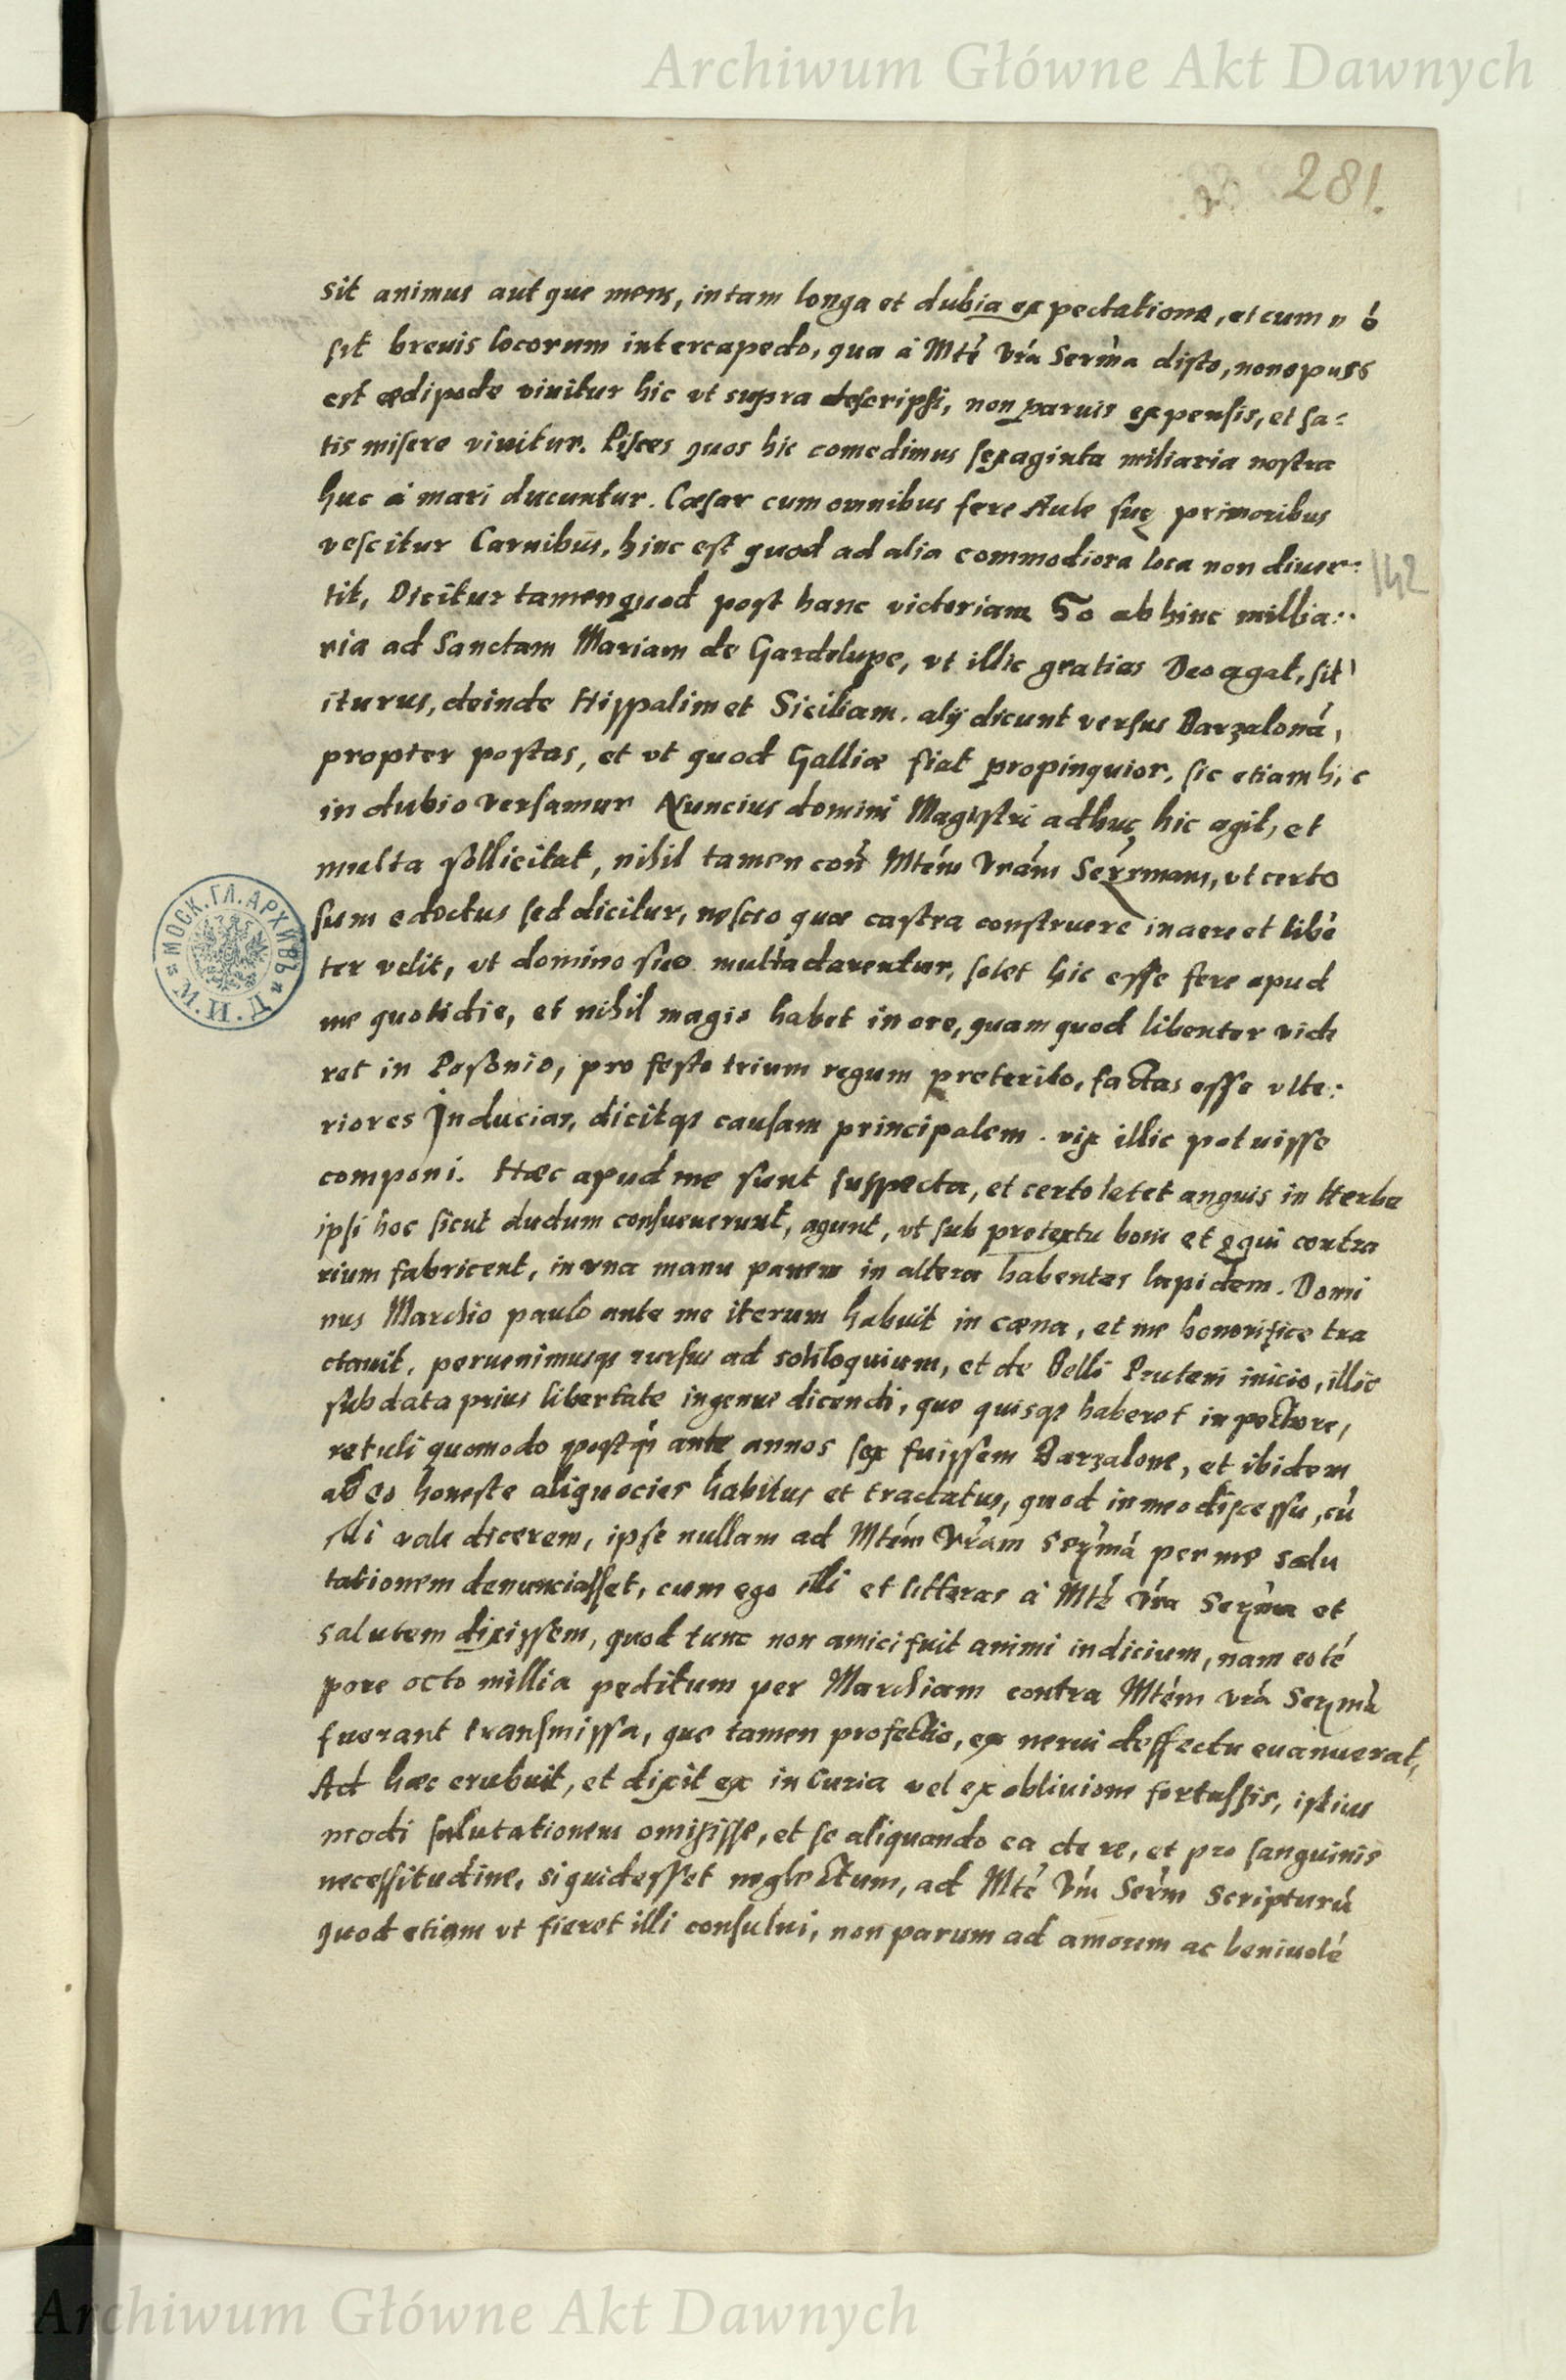 Archiwum Główne Akt Dawnych
281.
sit animus aut que mens, in tam longa et dubia expectatione, et cum nō
sit brevis locorum intercapedo, qua à Mte Vra Serma disto, non opus
est œdipode vivitur hic vt supra descripsi, non parvis expensis, et sa=
tis misere vivitur. Pisces quos hic comedimus sexaginta miliaria nostra
huc à mari ducuntur. Cæsar cum omnibus fere Aule suę primoribus
vescitur Carnibus, hinc est quod ad alia commodiora loca non diver=
142
tit, Dicitur tamen quod post hanc victoriam 50 ab hinc millia:
ria ad Sanctam Mariam de Gardelupe, vt illic gratias Deo agat, sit
iturus, deinde Hippalim et Siciliam. alij dicunt versus Barzalonā,
propter postas, et vt quod Galliæ fiat propinquior, sic etiam hic
in dubio versamur Nuncius domini Magistri adhuc hic agit, et
multa sollicitat, nihil tamen coñ Mtem Vram Serrmam, vt certo
sum edoctus sed dicitur, nescio quæ castra construere in aere et libē
ter velit, vt domino suo multa darentur, solet hic esse fere apud
me quotidie, et nihil magis habet in ore, quam quod libenter vide
ret in Posonio, pro festo trium regum preterito, factas esse vlte:
riores Inducias, dicitqȝ causam principalem. vix illic potuisse
componi. Hæc apud me sunt suspecta, et certo latet anguis in Herba
ipsi hoc sicut dudum consueverunt, agunt, vt sub pretextu boni et ęqui contra
rium fabricent, in vna manu panem in altera habentes lapidem. Domi
nus Marchio paulo ante me iterum habuit in cœna, et me honorifice tra
ctavit, pervenimusqȝ rursus ad soliloquium, et de Belli Pruteni inicio, illic
sub data prius libertate ingenue dicendi, que quisqȝ haberet in pectore,
retuli quomodo postqȝ ante annos sex fuissem Barzalone, et ibidem
ab eo honeste aliquocies habitus et tractatus, quod in meo discessu, cū
illi vale dicerem, ipse nullam ad Mtem Vram Serma per me salu
tationem denunciasset, cum ego illi et litteras à Mte Vra Serma et
salutem dixissem, quod tunc non amici fuit animi indicium, nam eo tē
pore octo millia peditum per Marchiam contra Mtem Vra Sermā
fuerant transmissa, que tamen profectio, ex nervi deffectu evanuerat,
Ad hæc erubuit, et dixit ex incuria vel ex oblivione fortassis, istius
modi salutationem omisisse, et se aliquando ea de re, et pro sanguinis
necessitudine, si quid esset neglectum, ad Mte Vm Serm scripturū
quod etiam vt fieret illi consului, non parum ad amorem ac benivolē
МОСК.ГЛ.АРХИВЪ
М.И.Д.
Archiwum Główne Akt Dawnych